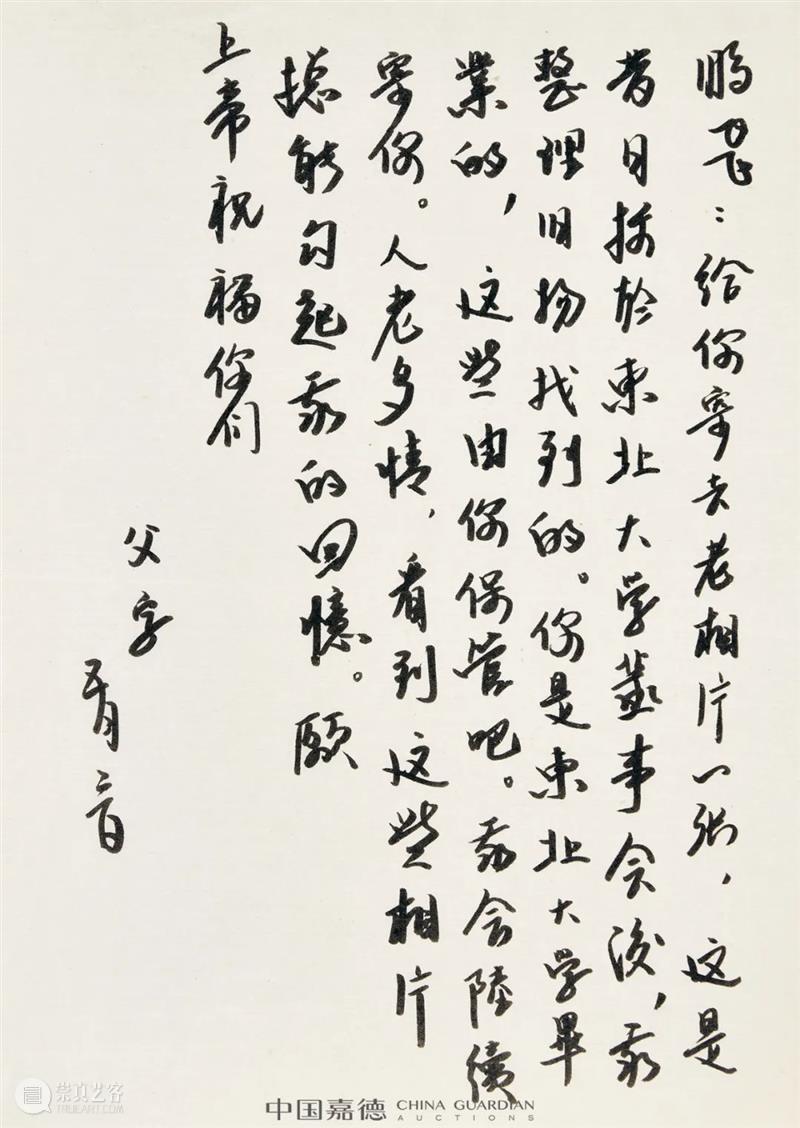 鹏飞：给你寄去老相片一张，这是
昔日摄於東北大学董事会後，我
整理旧物找到的。你是東北大学畢
業的，这些由你保管吧。我会陸續
寄你。人老多情，看到这些相片
總能勾起我的回憶。願
上帝祝福你们
父字
五月二日
中国嘉德 CHINA GUARDIAN
AUCTIONS
崇真艺客
TRUEART.COM